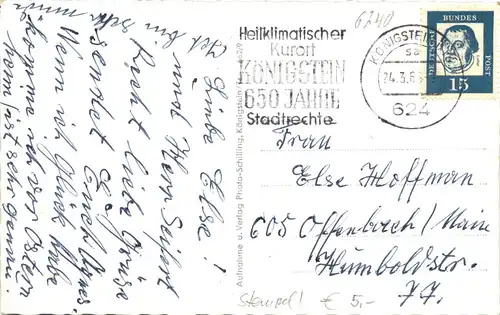 Liebe Else!
und Herr Seifert
Recht liebe Grüße
sendet Euch Agnes.
Wenn ich Glück habe
komme ich vor Ostern
heim,
Ich bin
sehr müde
6240
Heilklimatischer
Kurort
KÖNIGSTEIN
650 JAHRE
Stadtrechte
KÖNIGSTEIN
24.3.6
624
DEUTSCHE
BUNDES
POST
15
Aufnahme u. Verlag Photo-Schilling, Königstein
Frau
Else Hoffman
605 Offenbach/Main
Humboldstr.
77.
Stempel! € 5,-